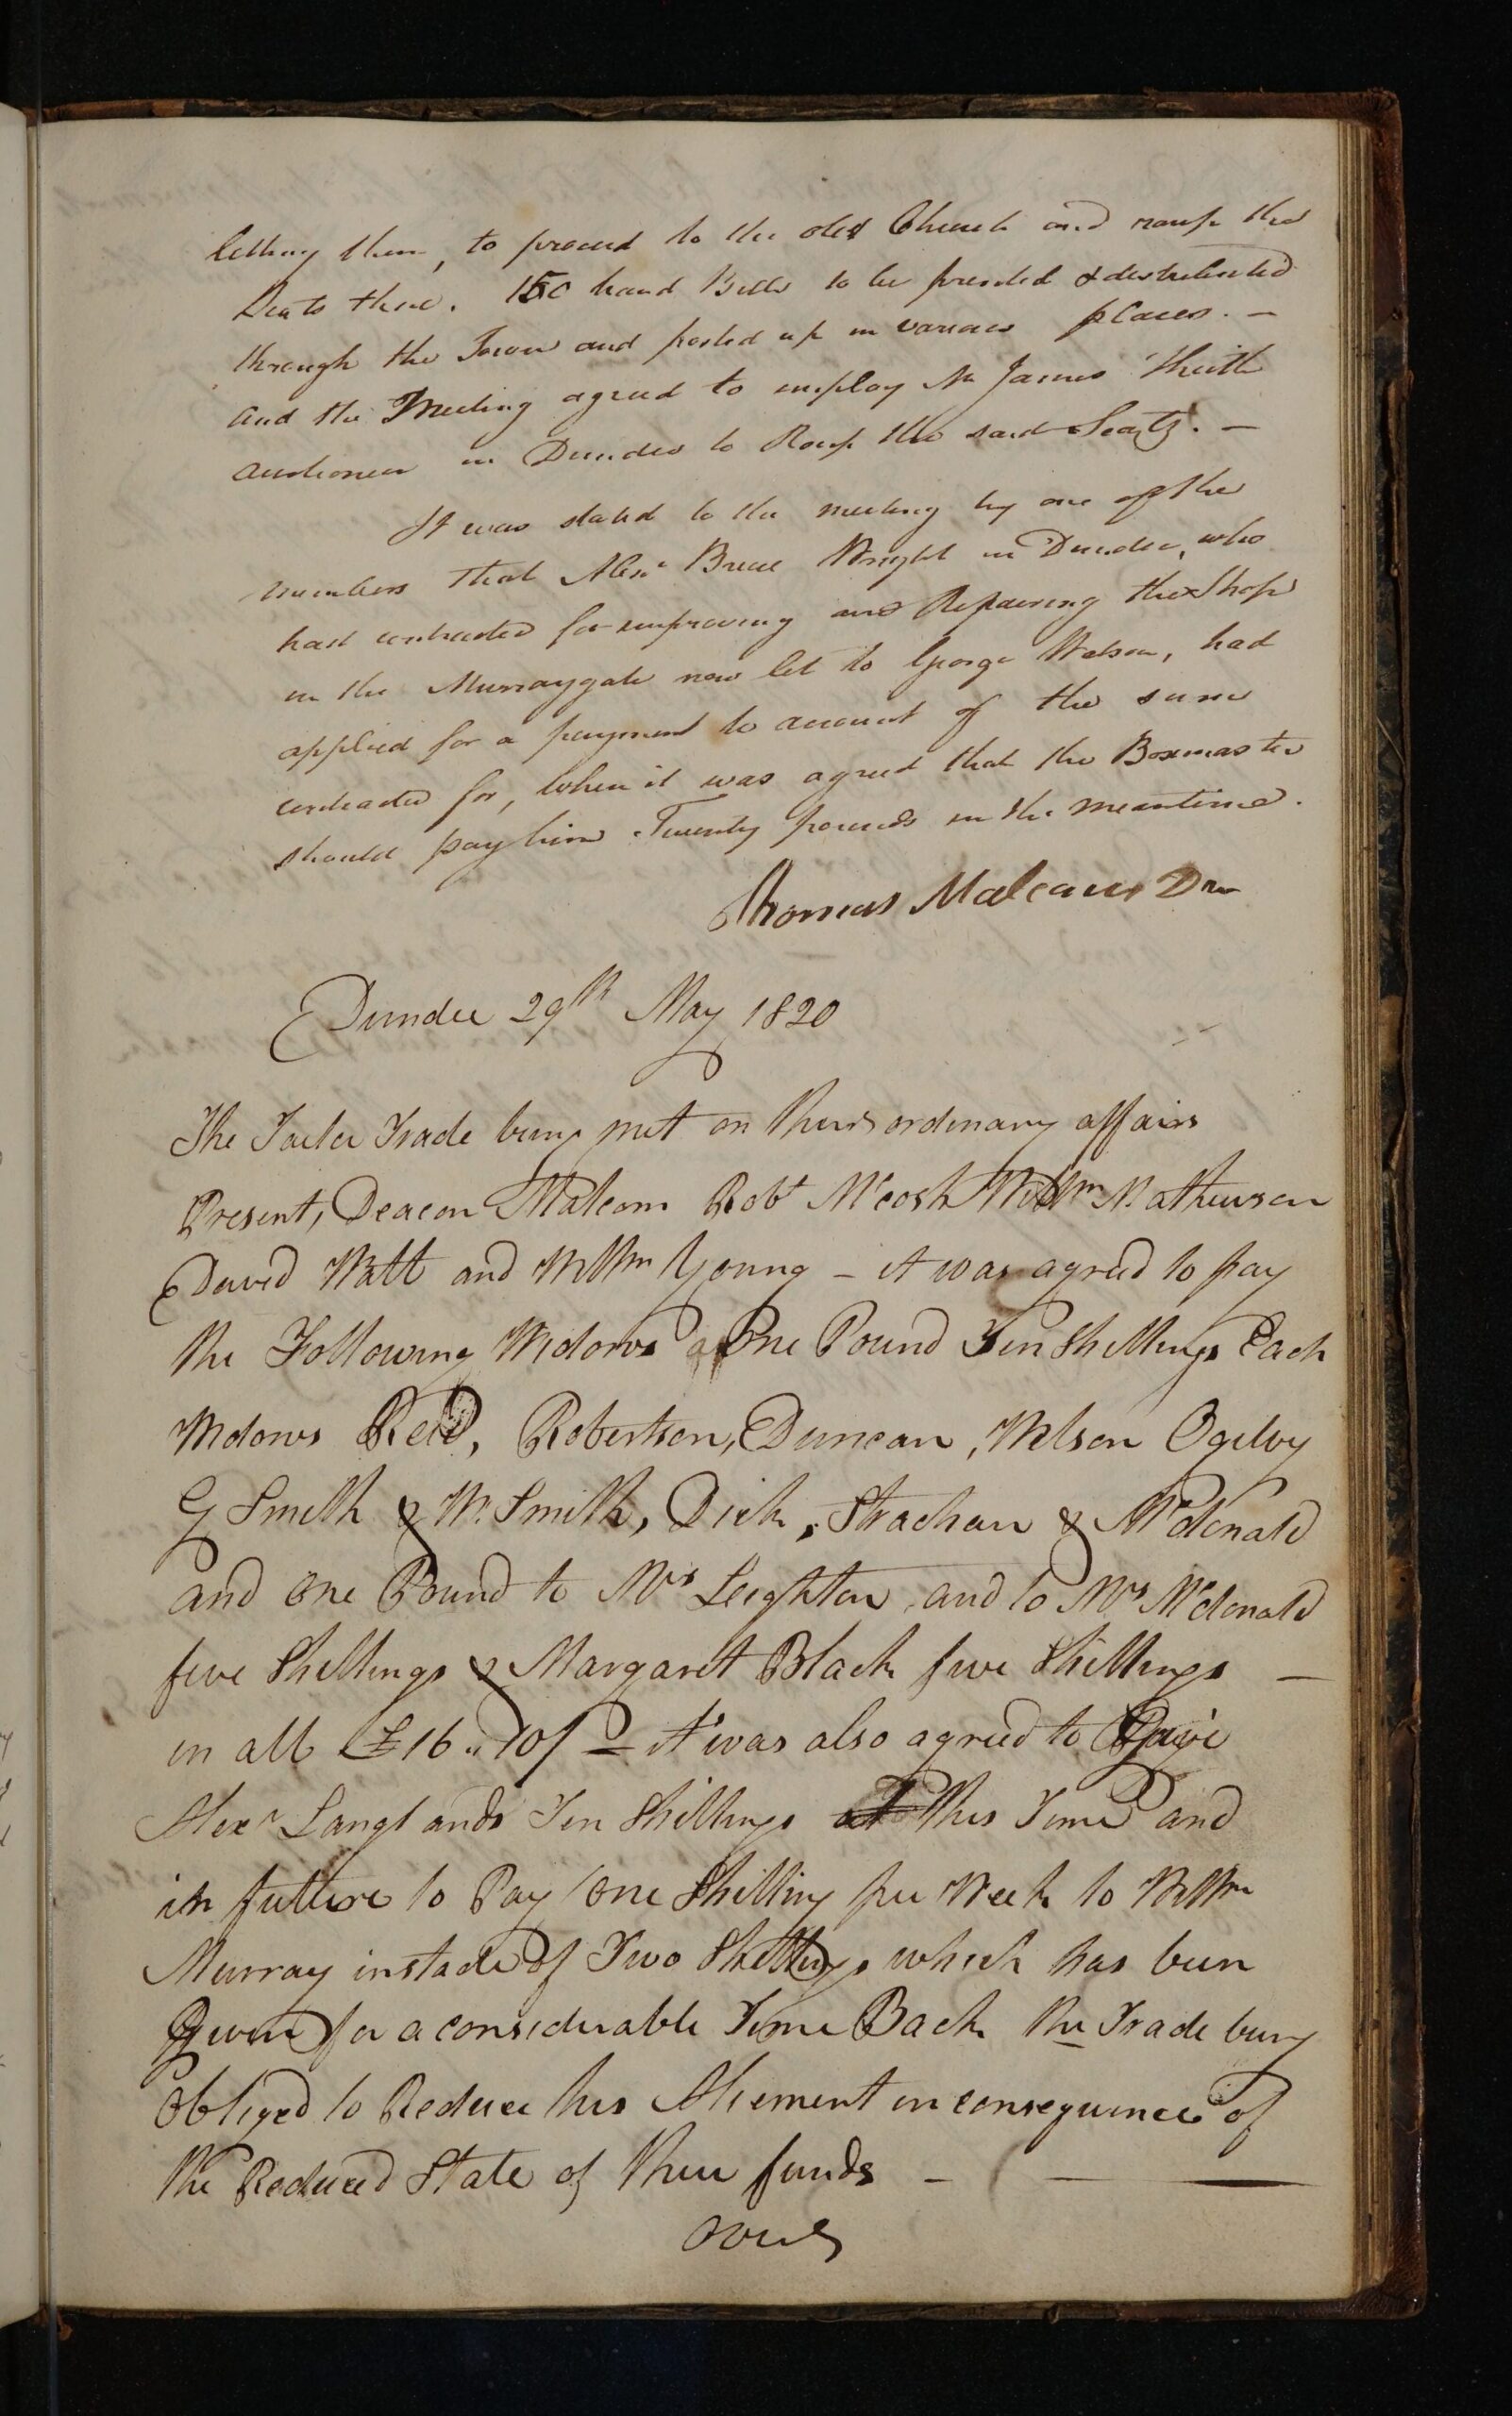 letting them, to proceed to the old Church and roup the
Seats there. 150 hand Bills to be printed & distributed
through the Town and posted up in various places. —
and the Meeting agreed to employ Mr James
auctioneer in Dundee to Roup the said Seats. —
It was stated to the meeting by one of the
members that Alexr Bruce Wright in Dundee, who
had contracted for improving and Repairing the Shop
in the Murraygate now let to George Watson, had
applied for a payment to account of the sum
contracted for, when it was agreed that the Boxmaster
should pay him Twenty pounds in the meantime.
Thomas Malcom Dn
Dundee 29th May 1820
The Tailor Trade being met on their ordinary affairs
Present, Deacon Malcom Robt McCosh Willm Mathewson
David Watt and Willm Young – it was agreed to pay
the Following Widows One Pound Ten Shillings Each
Widows Reid, Robertson, Duncan, Wilson Ogilvy
G Smith & W. Smith, Dick, Strachan & McDonald
and One Pound to Mrs Leighton and to Mrs McDonald
five Shillings & Margaret Black five Shillings —
in all £16 „ 10/ – it was also agreed to Give
Alexr Langlands Ten Shillings at this Time and
in future to Pay One Shilling per Week to Willm
Murray instade of Two Shillings which has been
Given for a considerable Time Back the Trade being
Obliged to Reduce his Aliement in consequence of
the Reduced State of their funds – — —